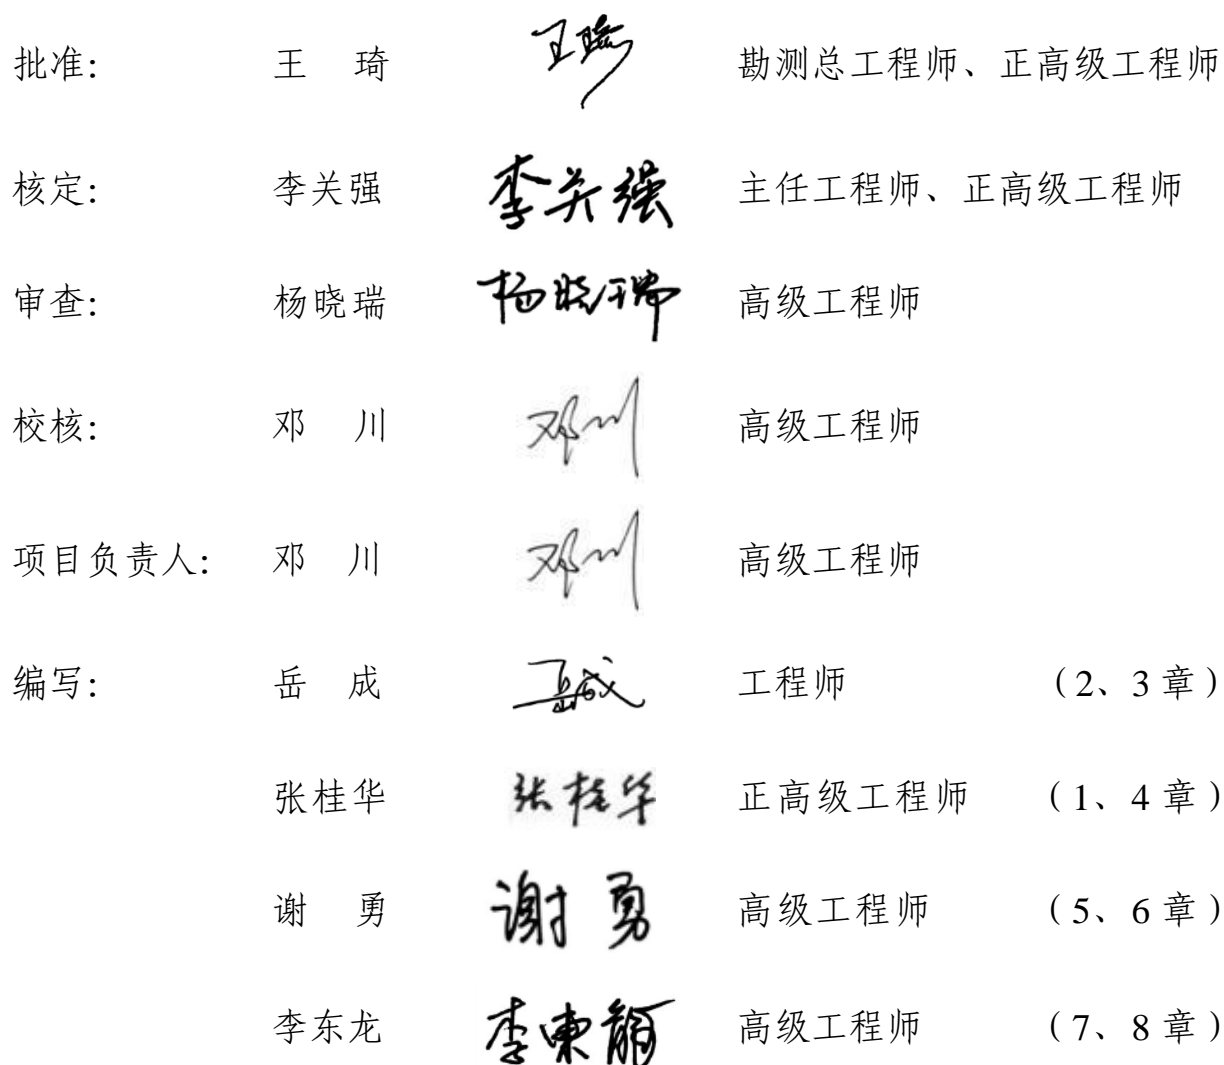 批准: 王 琦 王琦 勘测总工程师、正高级工程师
核定: 李关强 李关强 主任工程师、正高级工程师
审查: 杨晓瑞 杨晓瑞 高级工程师
校核: 邓 川 邓川 高级工程师
项目负责人: 邓 川 邓川 高级工程师
编写: 岳 成 岳成 工程师 (2、3 章)
张桂华 张桂华 正高级工程师 (1、4 章)
谢 勇 谢勇 高级工程师 (5、6 章)
李东龙 李東龍 高级工程师 (7、8 章)